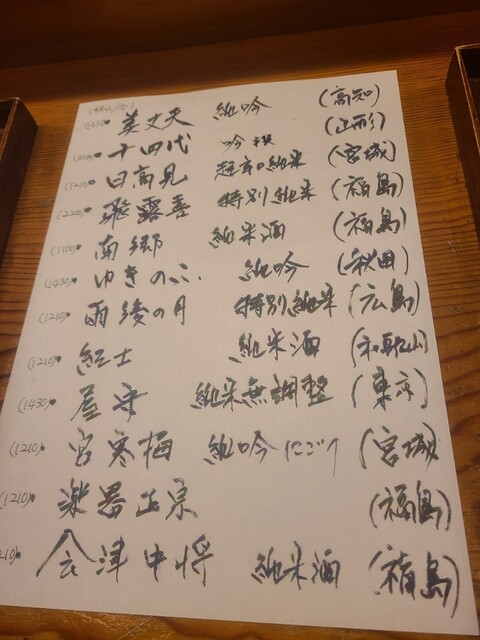 (1430) 美丈夫 純吟 (高知)
十四代 吟撰 (山形)
(1210) 日高見 超辛口純米 (宮城)
(2200) 飛露喜 特別純米 (福島)
(1100) 南郷 純米酒 (福島)
(1430) ゆきのび 純吟 (秋田)
(1210) 雨後の月 特別純米 (広島)
(1210) 紀土 純米酒 (和歌山)
(1430) 屋守 純米無調整 (東京)
(1210) 宮寒梅 純吟にごり (宮城)
(1210) 楽器正宗 (福島)
会津中将 純米酒 (福島)